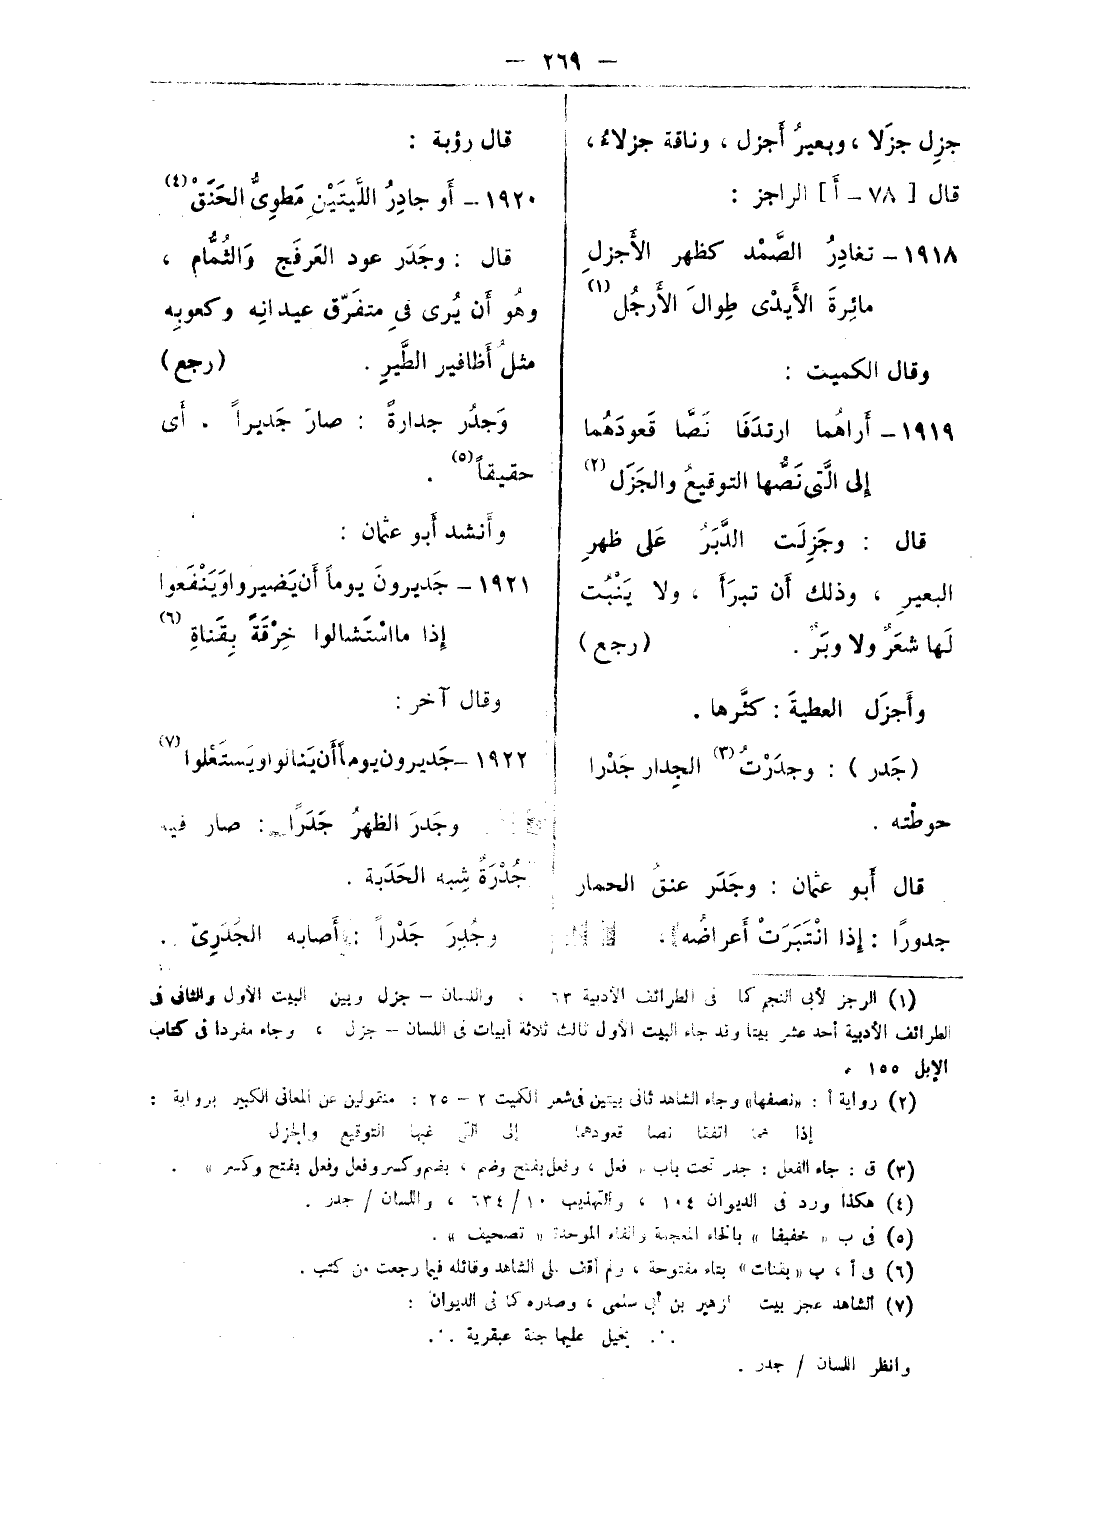 — ٢٦٩ —
جزِل جزَلا ، وبعيرُ أَجزل ، وناقة جزلاءُ ،
قال [ ٧٨ – أ ] الراجز :
١٩١٨ – تغادِرُ الصَّمْد كظهر الأَجزلِ
مائِرةَ الأَيدْى طِوالَ الأَرجُل (١)
وقال الكميت :
١٩١٩ – أَراهُما ارتدَفَا نَصًّا قَعودَهُما
إِلى الَّتى نَصُّها التوقيعُ والجَزَل (٢)
قال : وجَزِلَت الدَّبَرُ عَلى ظهرِ
البعيرِ ، وذلك أَن تبرَأَ ، ولا يَنْبُت
لَها شعَرٌ ولا وبَرٌ . (رجع)
وأَجزَل العطيةَ : كثَّرها .
(جَدر) : وجدَرْتُ (٣) الجِدار جَدْرا
حوطْته .
قال أَبو عثمان : وجَدَر عنقُ الحمار
جدورًا : إِذا انْتَبَرَتْ أَعراضُه .
قال رؤبة :
١٩٢٠ – أَو جادِرُ اللَّيتَيْنِ مَطوِىُّ الحَنَقْ (٤)
قال : وجَدَر عود العَرفَج وَالثُّمَّام ،
وهُو أَن يُرى فى متفَرّق عيدانِه وكعوبِه
مثلُ أَظافير الطَّيرِ . (رجع)
وَجدُر جدارةً : صارَ جَديراً . أَى
حقيقاً (٥) .
وأَنشد أَبو عثمان :
١٩٢١ – جَديرونَ يوماً أَن يَضيروا وَيَنْفَعوا
إِذا ما اسْتَشالوا خِرْقَةً بِقَناةِ (٦)
وقال آخر :
١٩٢٢ – جَديرون يوماً أَن يَنالوا ويَستَعْلوا (٧)
وجَدرَ الظهرُ جَدَرًا : صار فيه
جُدْرَةٌ شِبه الحَدَبة .
وجُدِرَ جَدْراً : أَصابه الجُدَرِىّ .
(١) الرجز لأبى النجم كما فى الطرائف الأدبية ٦٣ ، واللسان – جزل وبين البيت الأول والثانى فى
الطرائف الأدبية أحد عشر بيتا وقد جاء البيت الأول ثالث ثلاثة أبيات فى اللسان – جزل ، وجاء مفردا فى كتاب
الإبل ١٥٥ .
(٢) رواية أ : «نصفها» وجاء الشاهد ثانى بيتين فى شعر الكميت ٢ – ٢٥ : منقولين عن المعانى الكبير برواية :
إذا هما اتفقا نصا قعودهما إلى التى غبها التوقيع والجزل
(٣) ق : جاء الفعل : جدر تحت باب « فعل ، وفعل بفتح وضم ، بضم وكسر وفعل وفعل بفتح وكسر » .
(٤) هكذا ورد فى الديوان ١٠٤ ، والتهذيب ١٠/٦٣٤ ، واللسان / جدر .
(٥) فى ب « خفيفا » بالخاء المعجمة والفاء الموحدة « تصحيف » .
(٦) فى أ ، ب «بقنات» بتاء مفتوحة ، ولم أقف على الشاهد وقائله فيما رجعت من كتب .
(٧) الشاهد عجز بيت لزهير بن أبى سلمى ، وصدره كما فى الديوان :
.·. بخيل عليها جنة عبقرية .·.
وانظر اللسان / جدر .